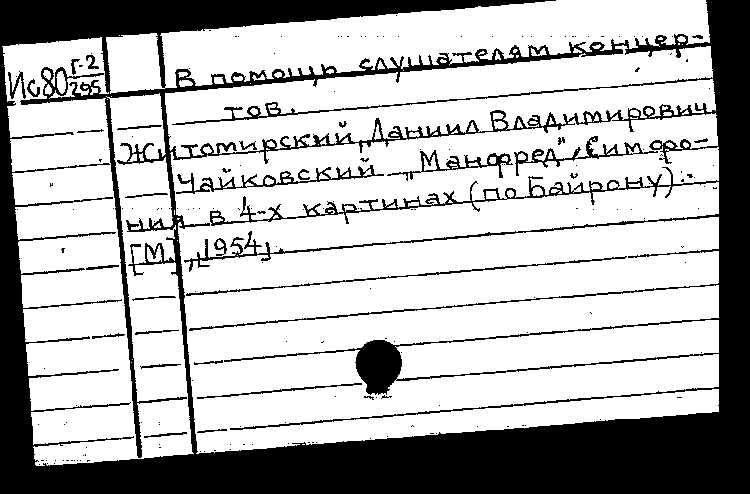 Ис80 Г-2/295
В помощь слушателям концер-
тов.
Житомирский, Даниил Владимирович.
Чайковский „Манфред", Симфо-
ния в 4-х картинах (по Байрону).
[М.], [1954].